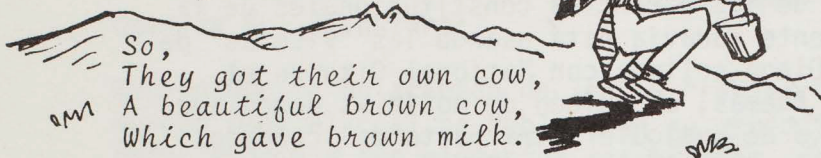 So,
They got their own cow,
A beautiful brown cow,
Which gave brown milk.